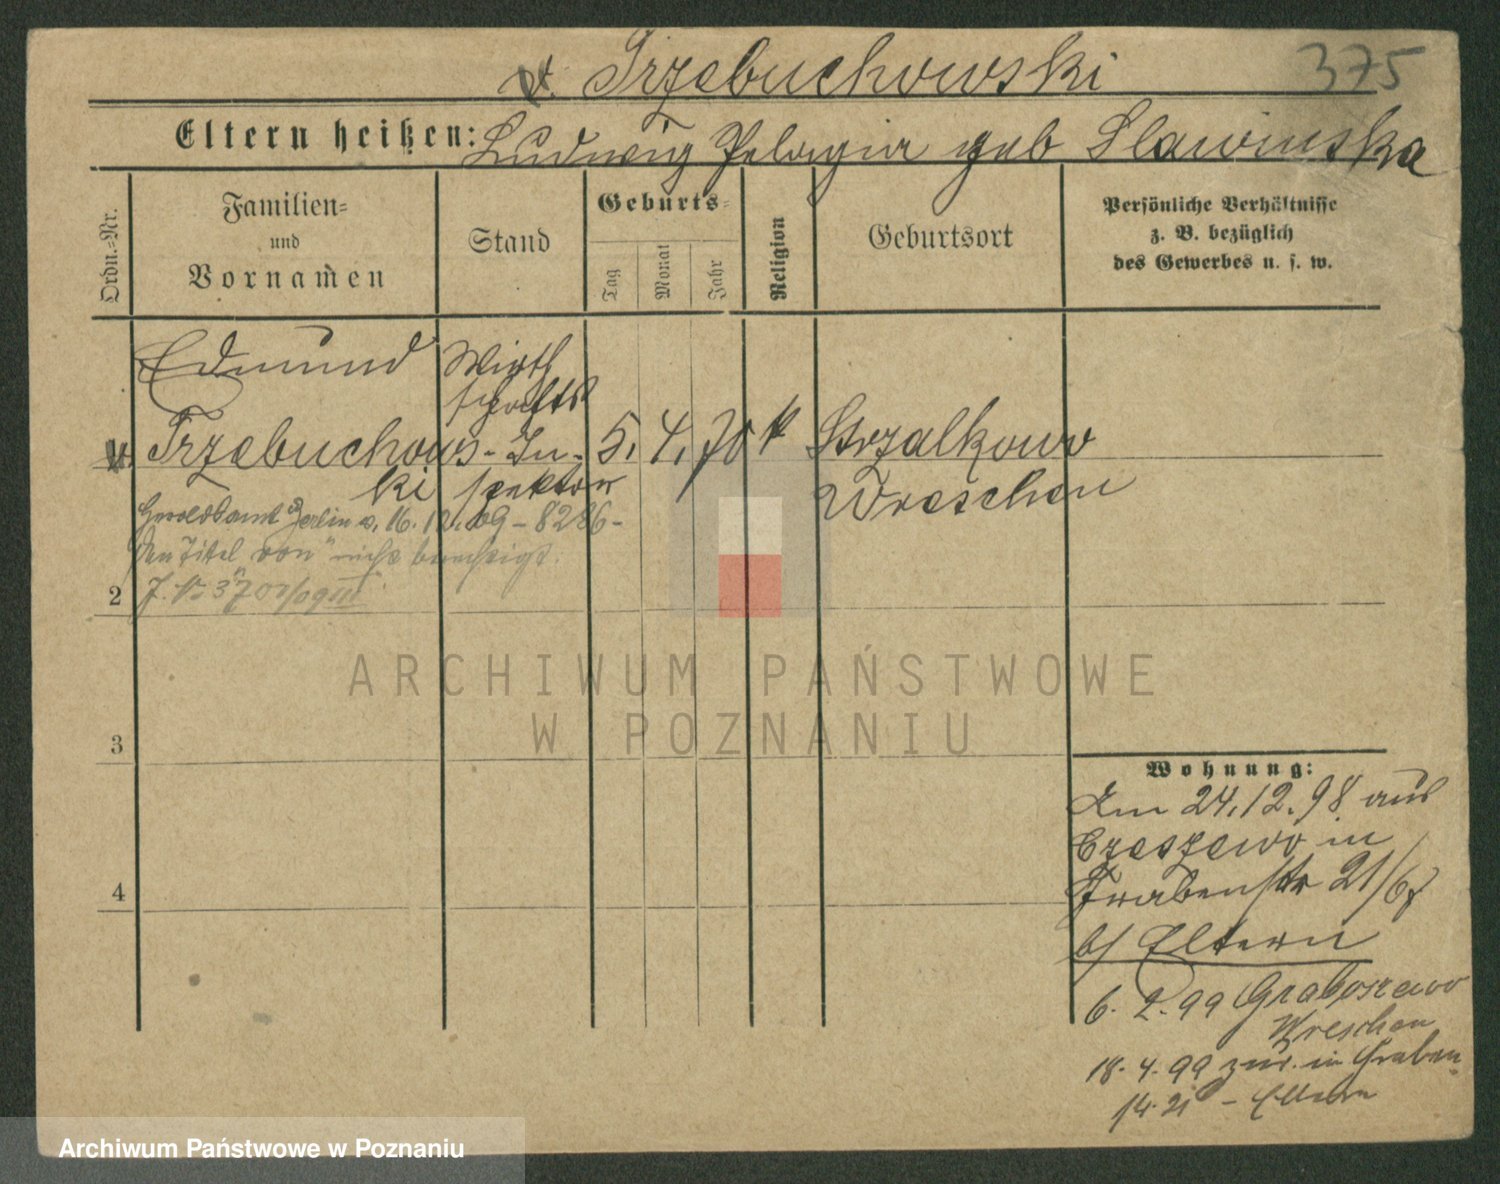 v. Trzebuchowski
375
Eltern heißen: Ludwig Pelagia geb Slawinska
Ordn.-Nr.
Familien-
und
Vornamen
Stand
Geburts-
Tag
Monat
Jahr
Religion
Geburtsort
Persönliche Verhältnisse
z. B. bezüglich
des Gewerbes u. s. w.
Edmund
Wirth
schafts
v. Trzebuchows-
ki
In-
spektor
5. 4. 70 k
Strzalkowo
Wreschen
Heroldsamt Berlin v. 16. 12. 09 - 8286 -
den Titel "von" nicht berechtigt.
J. No 3707/09 III
2
3
4
Wohnung:
Am 24.12.98 aus
Czeszewo in
Grabenstr 21/67
b/ Eltern
6. 2. 99 Graboszewo
Wreschen
18. 4. 99 zur. in Graben
14. 21 - Eltern
ARCHIWUM PAŃSTWOWE
W POZNANIU
Archiwum Państwowe w Poznaniu